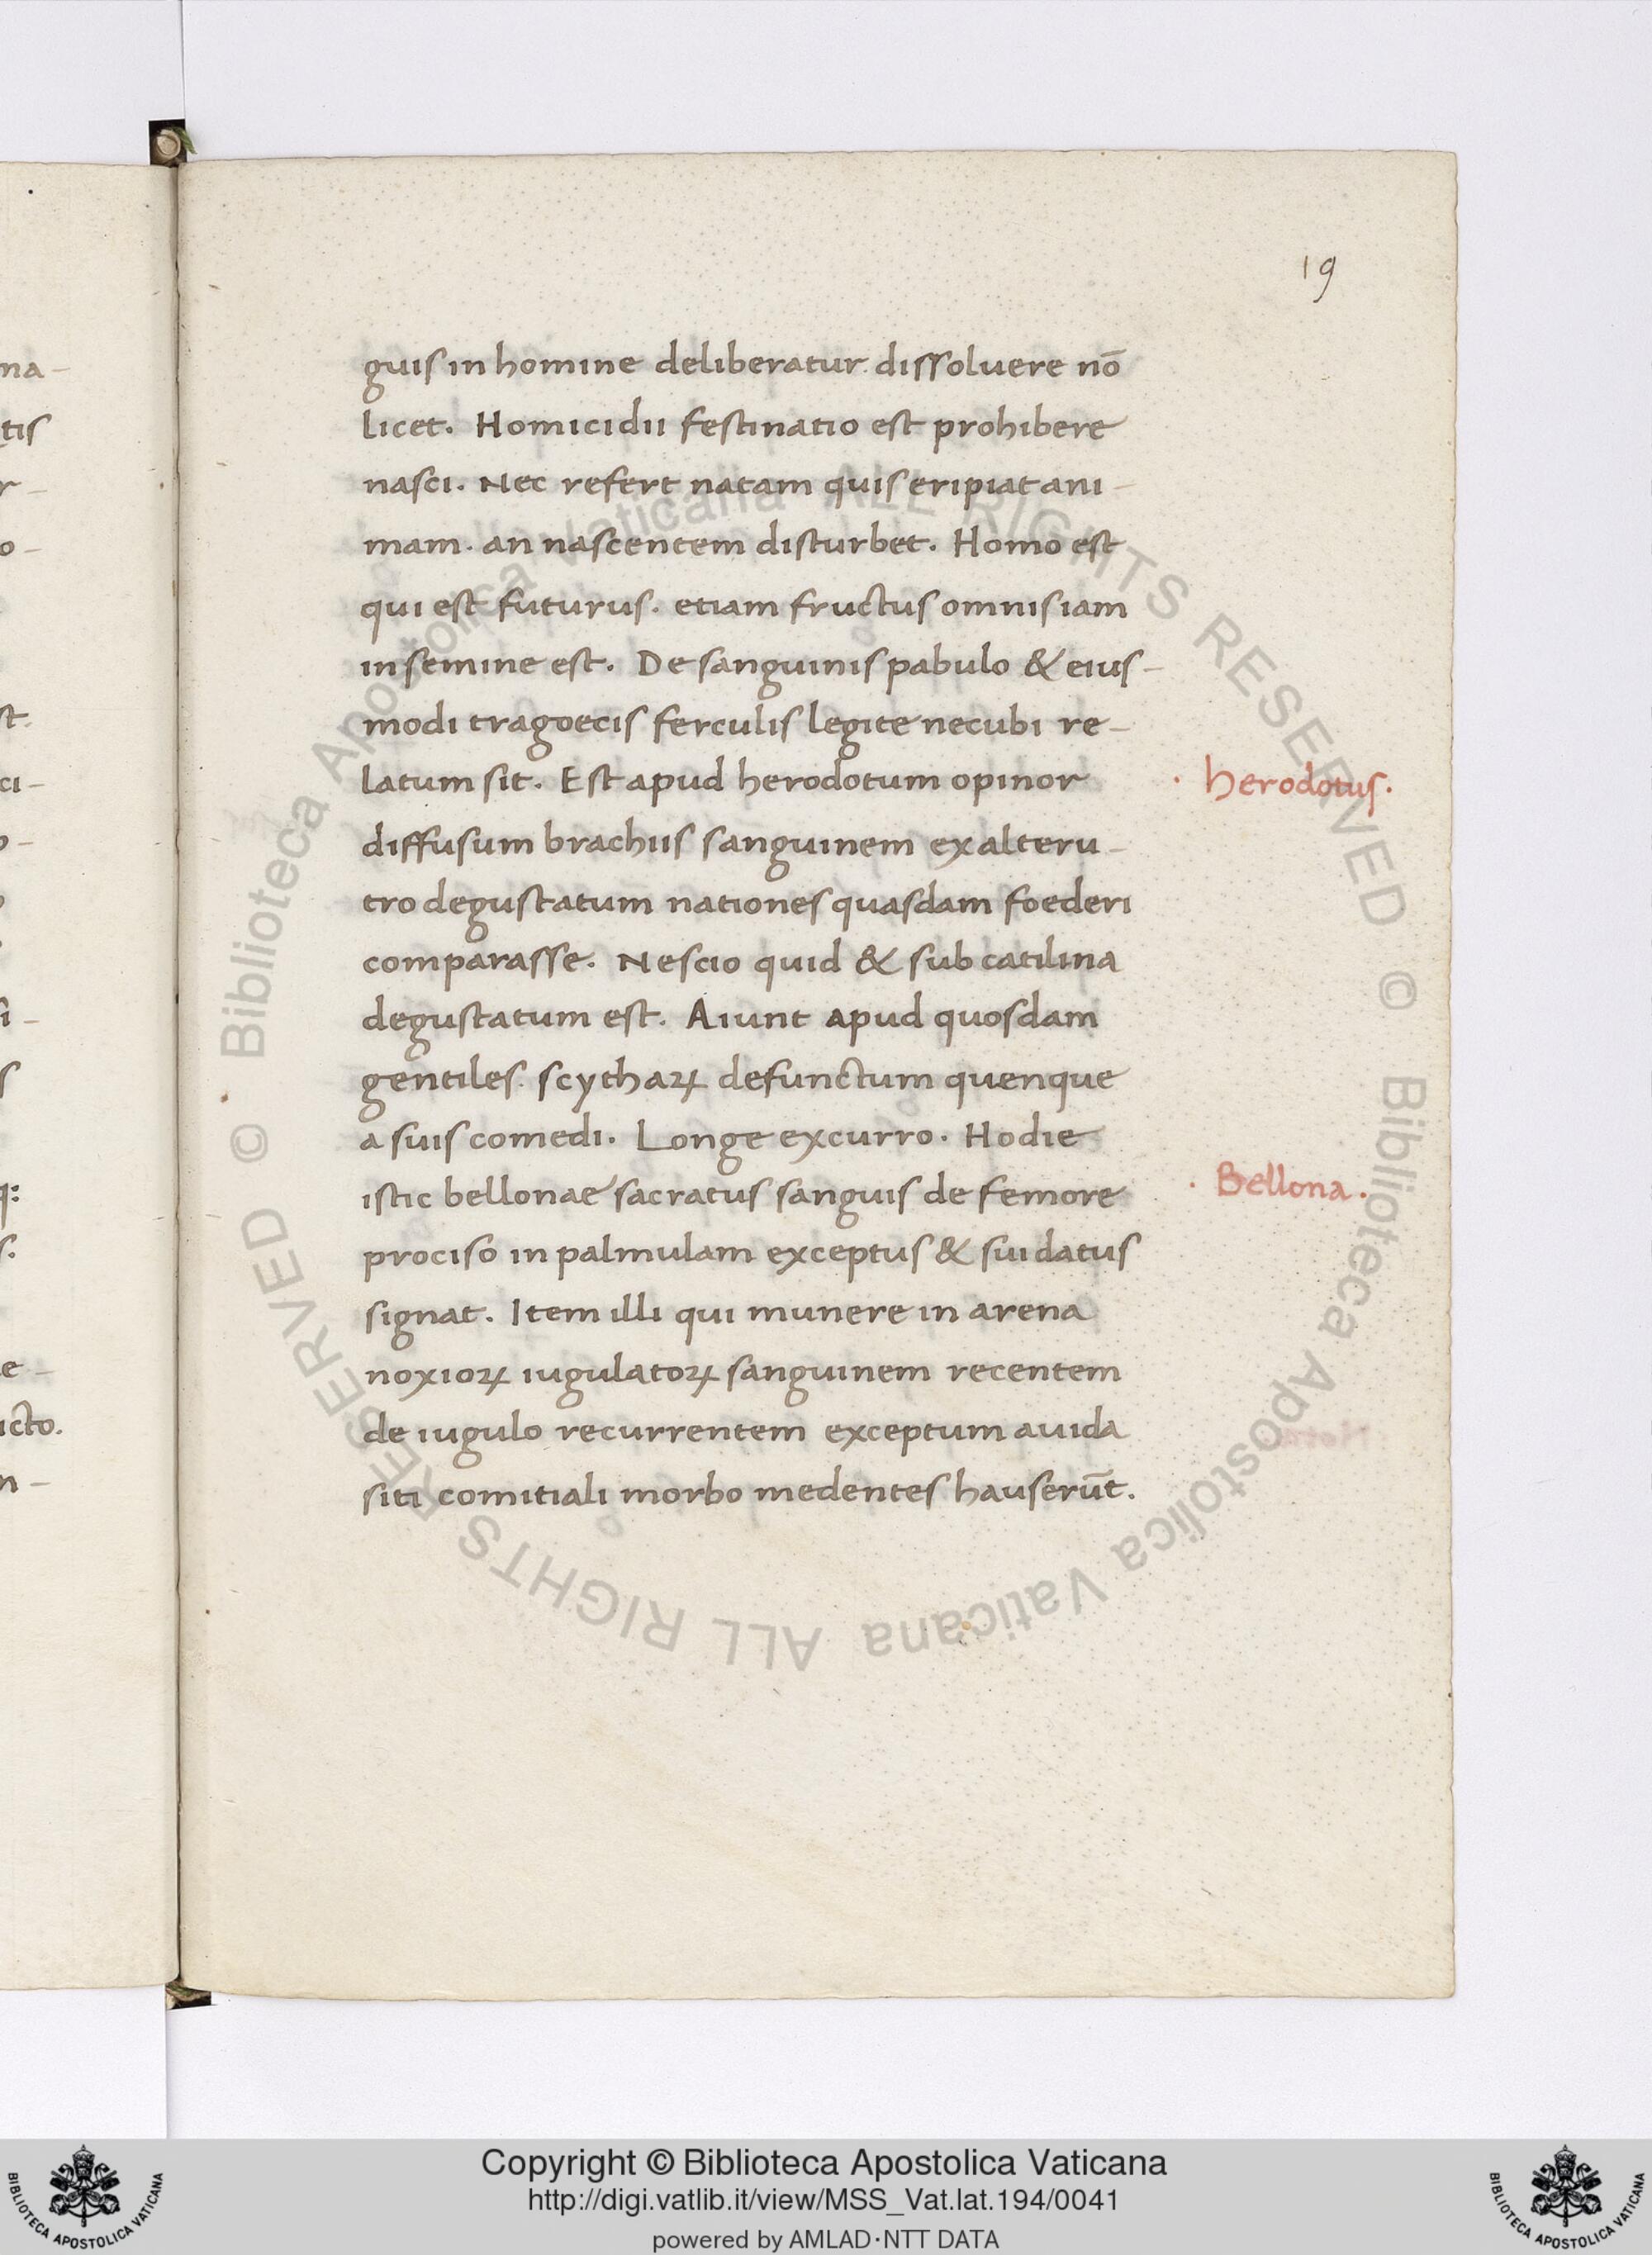 19
guis in homine deliberatur. dissoluere nō
licet. Homicidii festinatio est prohibere
nasci. Nec refert natam quis eripiat ani-
mam. an nascentem disturbet. Homo est
qui est futurus. etiam fructus omnis iam
in semine est. De sanguinis pabulo & eius-
modi tragoecis ferculis legite necubi re-
latum sit. Est apud herodotum opinor
herodotus.
diffusum brachiis sanguinem ex alteru-
tro degustatum nationes quasdam foederi
comparasse. Nescio quid & sub catilina
degustatum est. Aiunt apud quosdam
gentiles. scythaꝝ defunctum quenque
a suis comedi. Longe excurro. Hodie
istic bellonae sacratus sanguis de femore
Bellona.
prociso in palmulam exceptus & sui datus
signat. Item illi qui munere in arena
noxioꝝ iugulatoꝝ sanguinem recentem
de iugulo recurrentem exceptum auida
siti comitiali morbo medentes hauserūt.
na-
tis
r-
o-
st.
ci-
o-
i-
s
q:
s.
e-
icto.
n-
© Biblioteca Apostolica Vaticana ALL RIGHTS RESERVED © Biblioteca Apostolica Vaticana ALL RIGHTS RESERVED
Copyright © Biblioteca Apostolica Vaticana
http://digi.vatlib.it/view/MSS_Vat.lat.194/0041
powered by AMLAD·NTT DATA
BIBLIOTECA APOSTOLICA VATICANA
BIBLIOTECA APOSTOLICA VATICANA